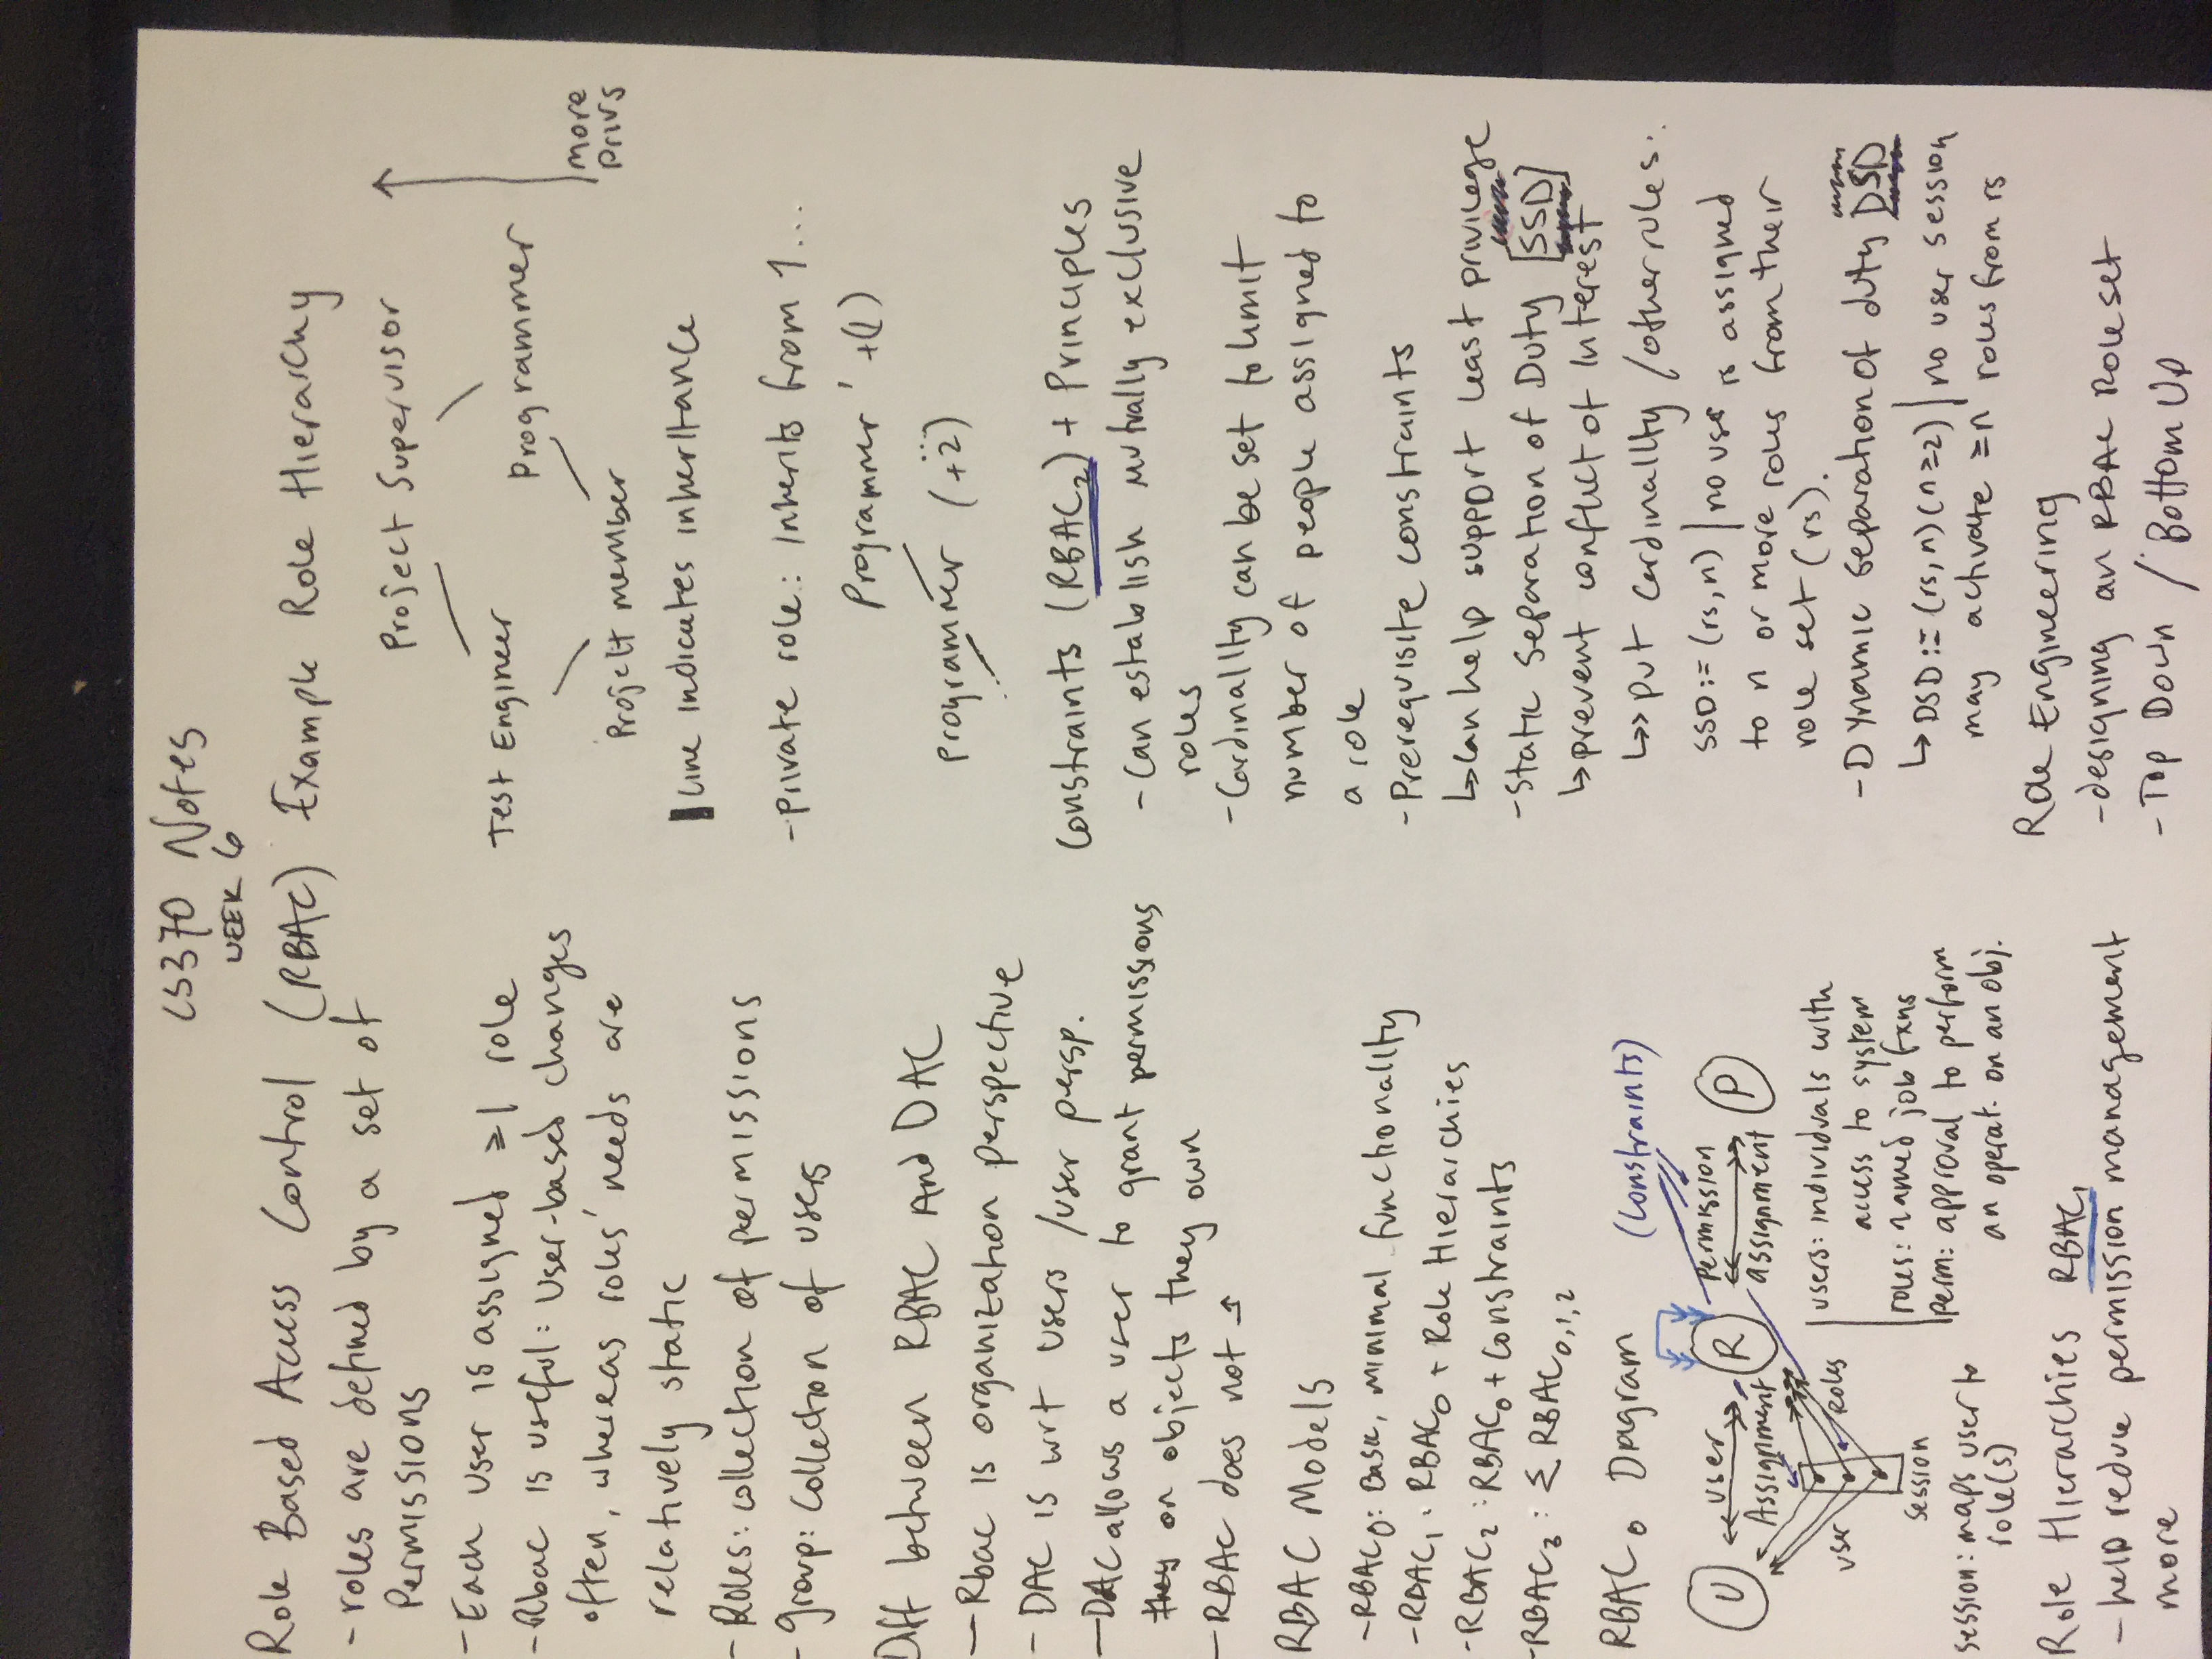 CS370 Notes
WEEK 6
Role Based Access Control (RBAC)
- roles are defined by a set of
Permissions
- Each user is assigned ≥1 role
- Rbac is useful: User-based changes
often, whereas roles' needs are
relatively static
- Roles: collection of permissions
- Group: Collection of users
Diff between RBAC And DAC
- Rbac is organization perspective
- DAC is wrt users /user persp.
- DAC allows a user to grant permissions
they on objects they own
- RBAC does not ↑
RBAC Models
- RBAC₀: Basic, minimal functionality
- RBAC₁: RBAC₀ + Role Hierarchies
- RBAC₂: RBAC₀ + Constraints
- RBAC₃: Σ RBAC₀,₁,₂
RBAC₀ Diagram
(Constraints)
U
user
Assignment
R
Permission
assignment
P
user
Roles
Session
users: individuals with
access to system
roles: named job fxns
perm: approval to perform
an operat. on an obj.
session: maps user to
role(s)
Role Hierarchies RBAC₁
- help reduce permission management
more
Example Role Hierarchy
Project Supervisor
Test Engineer
Programmer
Project member
more
privs
line indicates inheritance
- Private role: Inherits from 1...
Programmer ' +(1)
Programmer (+2)
Constraints (RBAC₂) + Principles
- Can establish mutually exclusive
roles
- Cardinality can be set to limit
number of people assigned to
a role
- Prerequisite constraints
↳ Can help support least privilege
- Static Separation of Duty [SSD]
↳ prevent conflict of Interest
↳> put cardinality /other rules.
SSD:= (rs,n) | no user is assigned
to n or more roles from their
role set (rs).
- Dynamic Separation of duty DSD
↳ DSD:= (rs,n)(n≥2) | no user session
may activate ≥n roles from rs
Role Engineering
- designing an RBAC Role set
- Top Down / Bottom Up